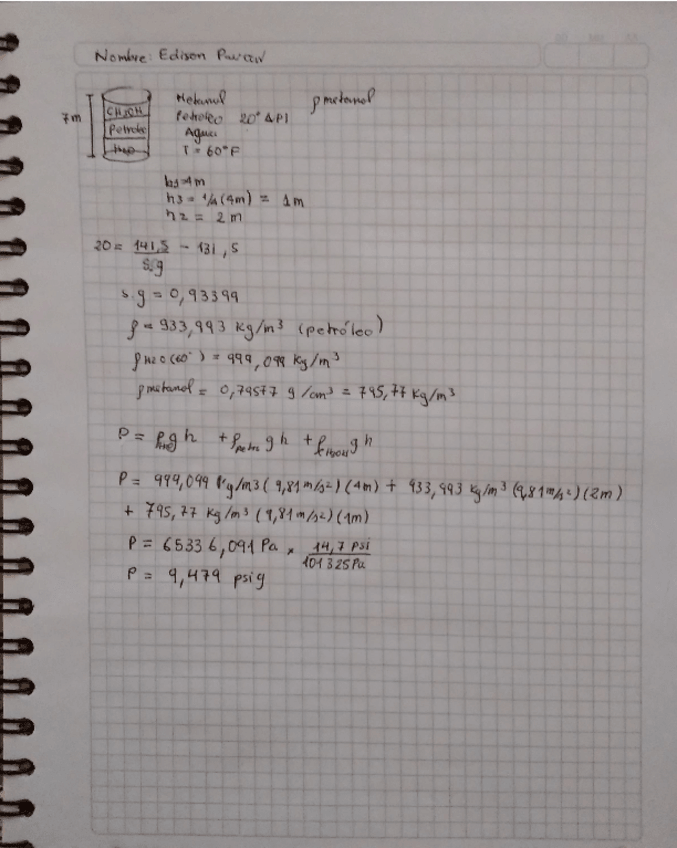 Nombre: Edison
7m
CH3OH
Petroleo
H2O
Metanol ρmetanol
Petroleo 20° API
Agua
T = 60°F
h1=4m
h3 = 1/4 (4m) = 1m
h2 = 2m
20 = 141,5 / s.g - 131,5
s.g = 0,93399
ρ = 933,993 kg/m³ (petróleo)
ρH2O (60°) = 999,099 kg/m³
ρmetanol = 0,79577 g/cm³ = 795,77 kg/m³
P = ρH2O g h + ρpetro g h + ρCH3OH g h
P = 999,099 kg/m3 (9,81 m/s2) (4m) + 933,993 kg/m³ (9,81 m/s²) (2m)
+ 795,77 kg/m³ (9,81 m/s2) (1m)
P = 65336,091 Pa × 14,7 psi / 101325 Pa
P = 9,479 psig